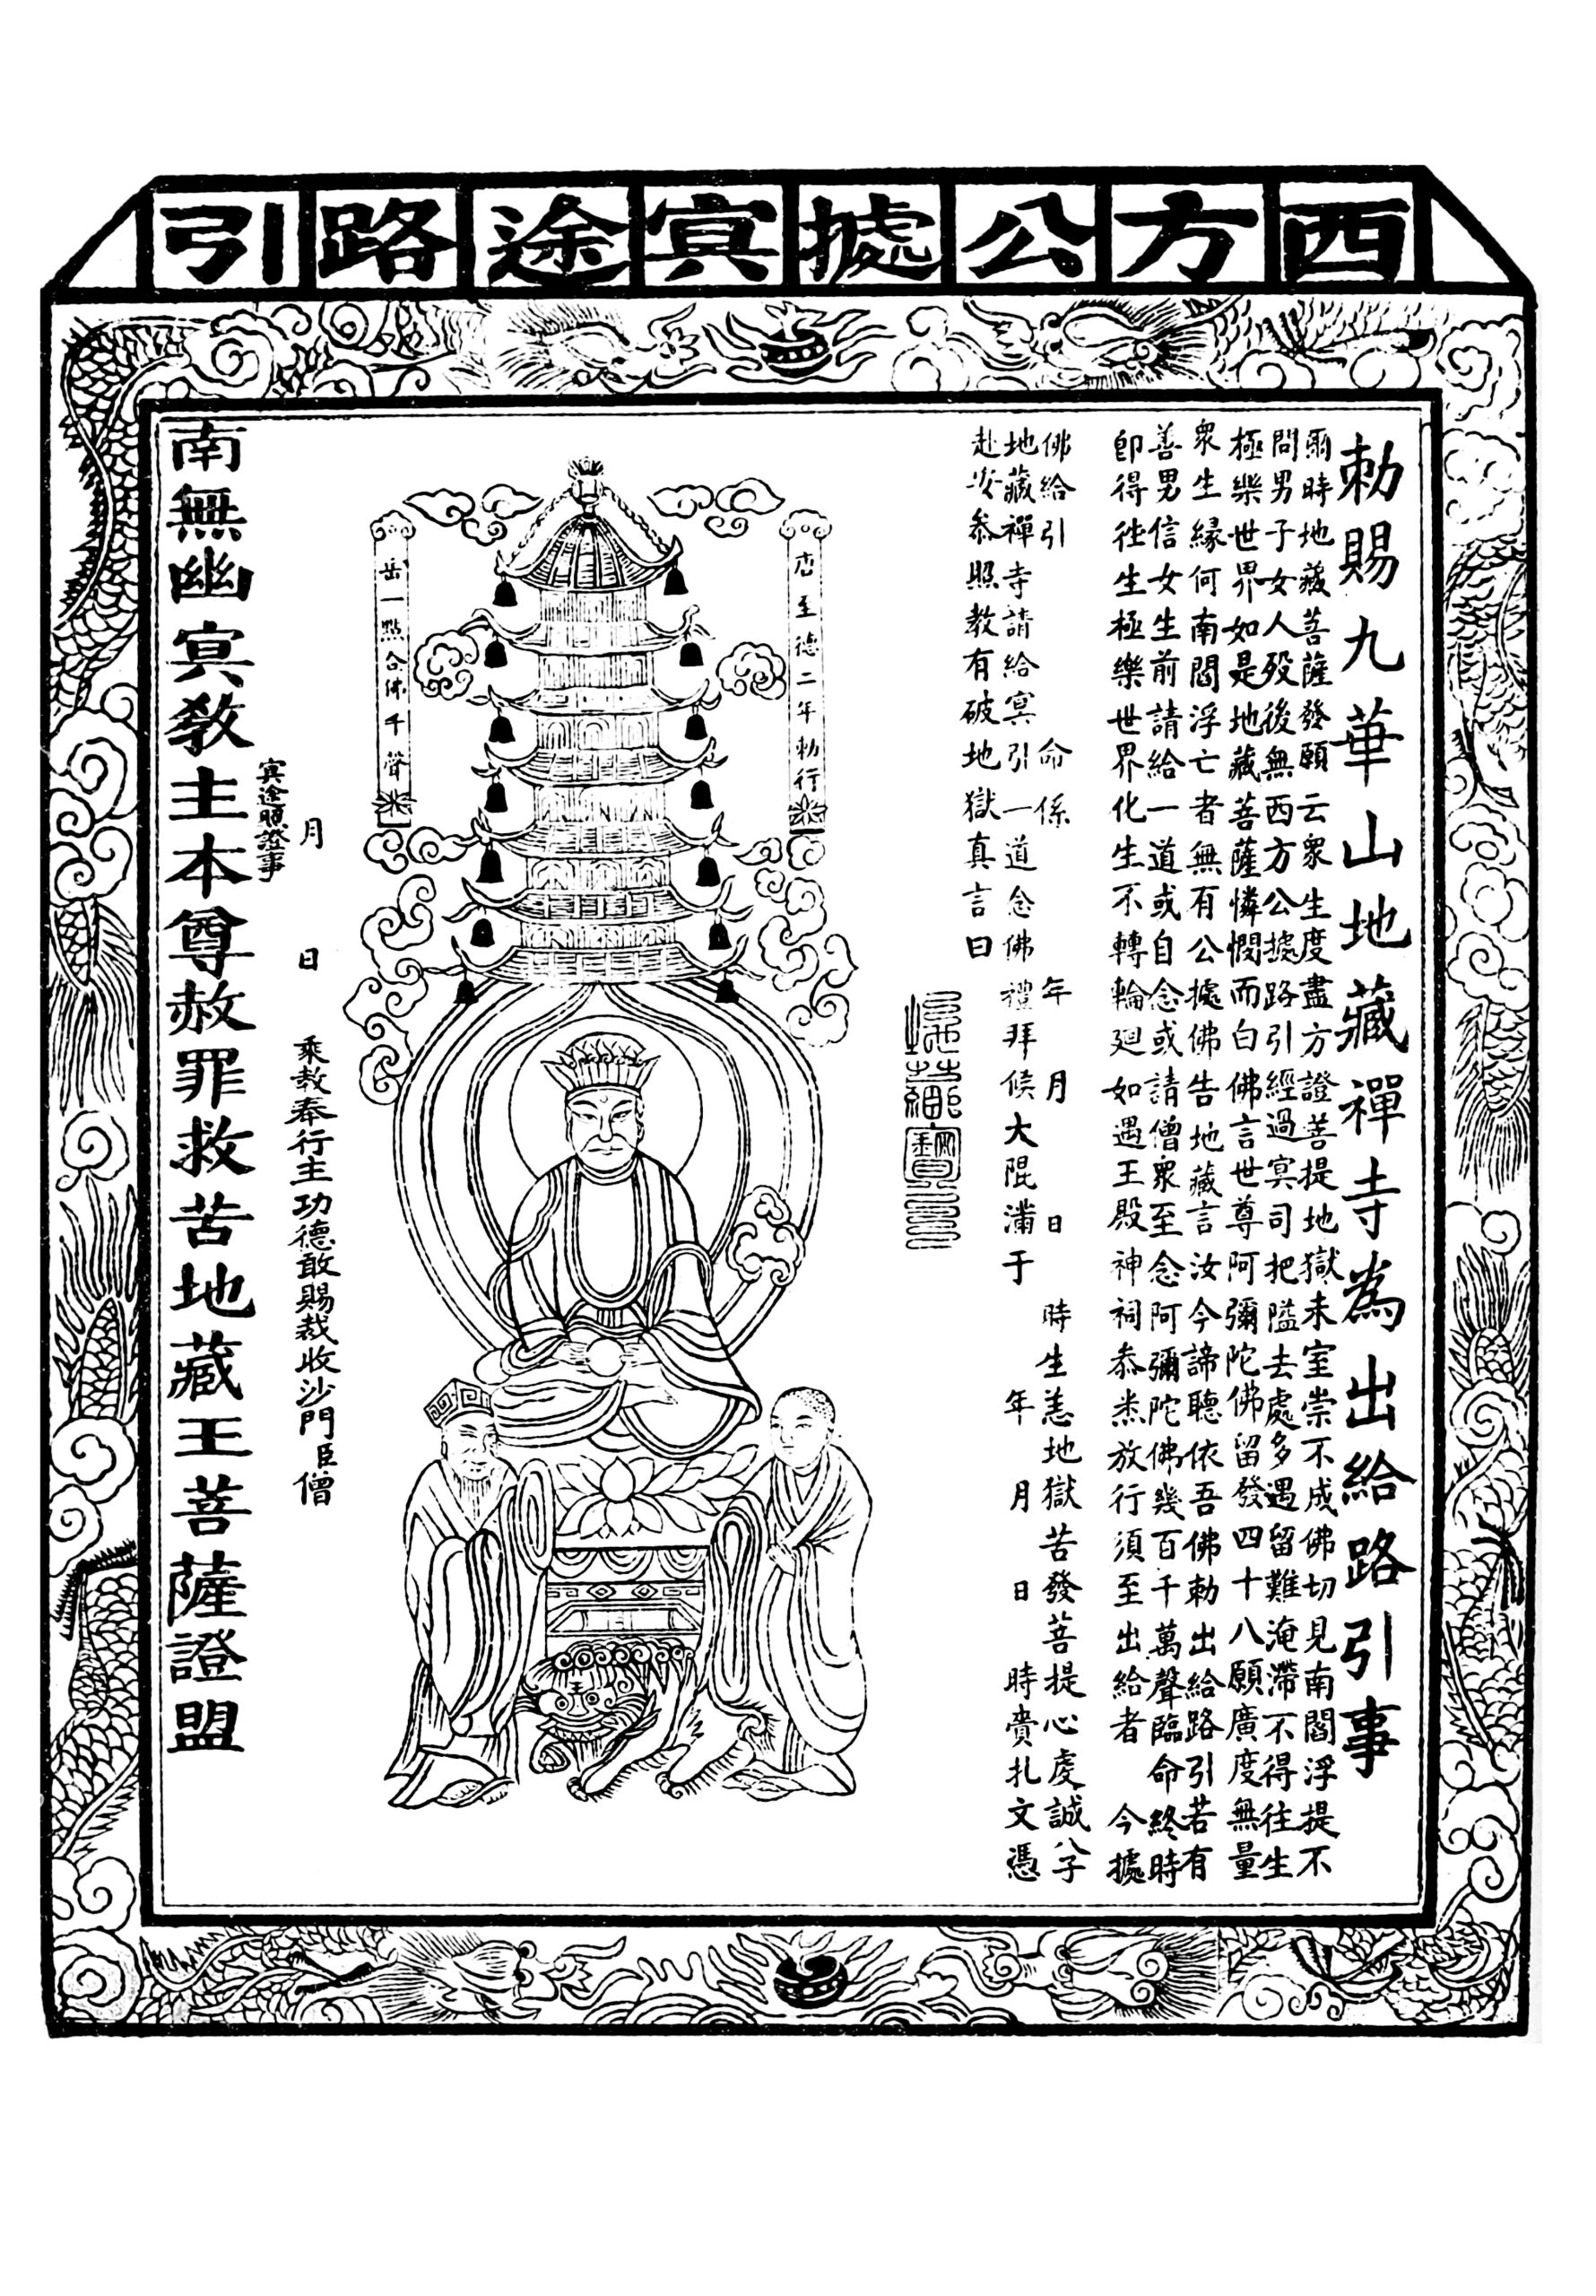 西方公據冥途路引
勅賜九華山地藏禪寺為出給路引事
爾時地藏菩薩發願云眾生度盡方證菩提地獄未空崇不成佛切見南閻浮提不
問男子女人歿後無西方公據路引經過冥司把隘去處多遇留難淹滯不得往生
極樂世界如是地藏菩薩憐憫而白佛言世尊阿彌陀佛留發四十八願廣度無量
衆生緣何南閻浮亡者無有公據佛告地藏言汝今諦聽依吾佛勅出給路引若有
善男信女生前請給一道或自念或請僧衆至念阿彌陀佛幾百千萬聲臨命終時
即得往生極樂世界化生不轉輪廻如遇王殿神祠叅悉放行須至出給者 今據
佛給引 命係 年 月 日 時生恙地獄苦發菩提心虔誠八子
地藏禪寺請給冥引一道念佛禮拜候大限滿于 年 月 日 時賫扎文憑
赴叅照教有破地獄真言曰
地藏寶印
唐至德二年勅行
岳一點合佛千聲
月 日 乘教奉行主功德敢賜裁收沙門臣僧
冥途照證事
南無幽冥教主本尊赦罪救苦地藏王菩薩證盟